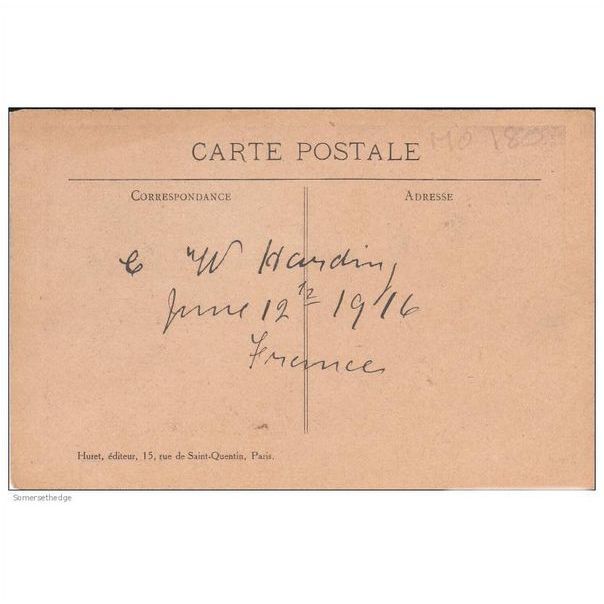 MO 18
CARTE POSTALE
CORRESPONDANCE
ADRESSE
C W Harding
June 12th 1916
France
Huret, éditeur, 15, rue de Saint-Quentin, Paris.
Somersethedge